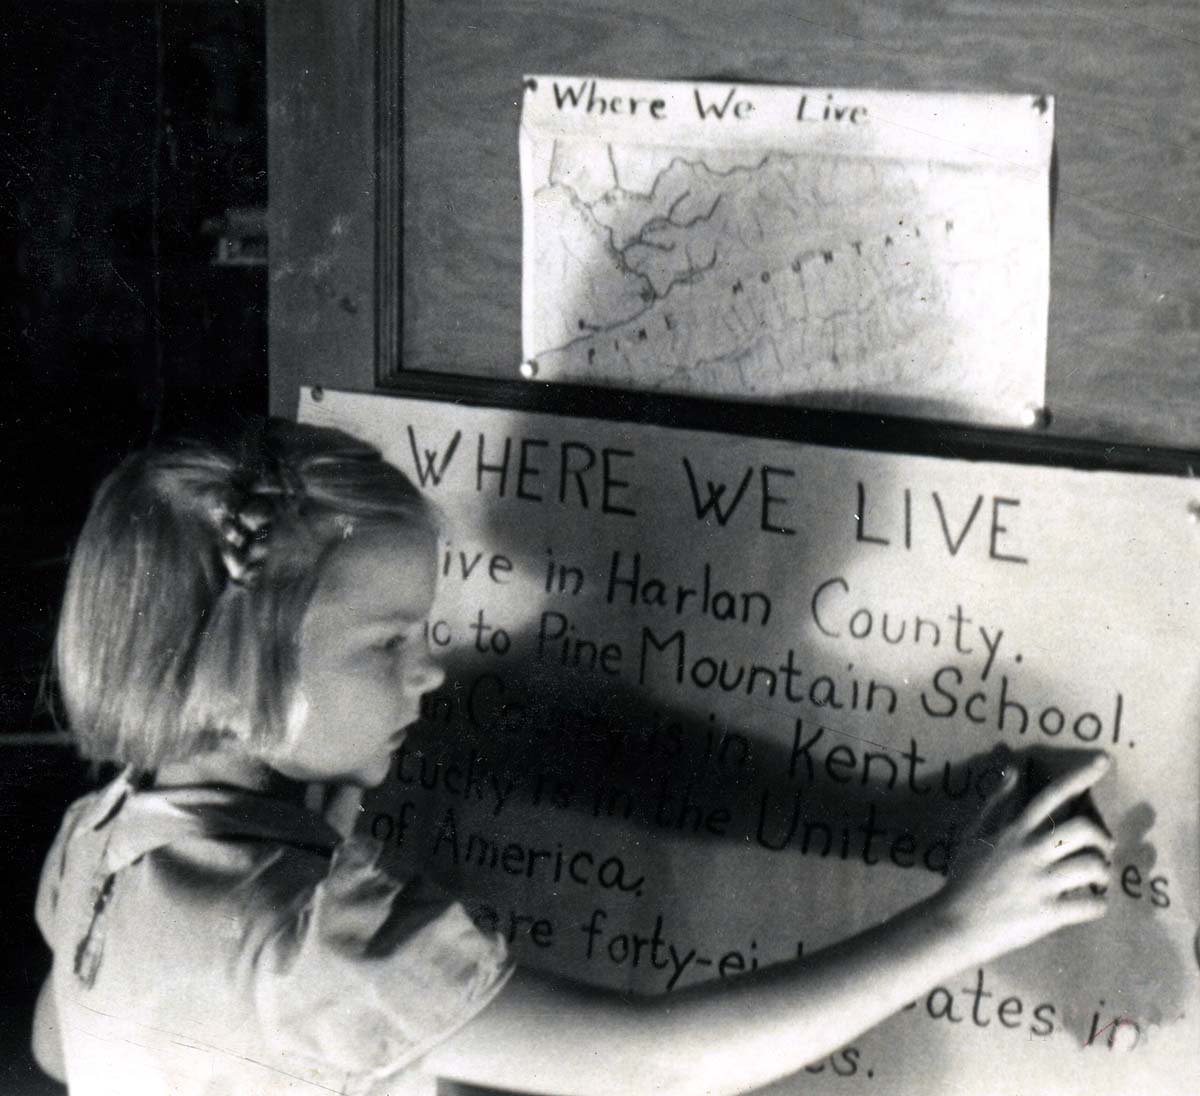 Where We Live
PINE MOUNTAIN
WHERE WE LIVE
ive in Harlan County.
to Pine Mountain School.
County is in Kentucky
tucky is in the United States
of America.
are forty-eight states in